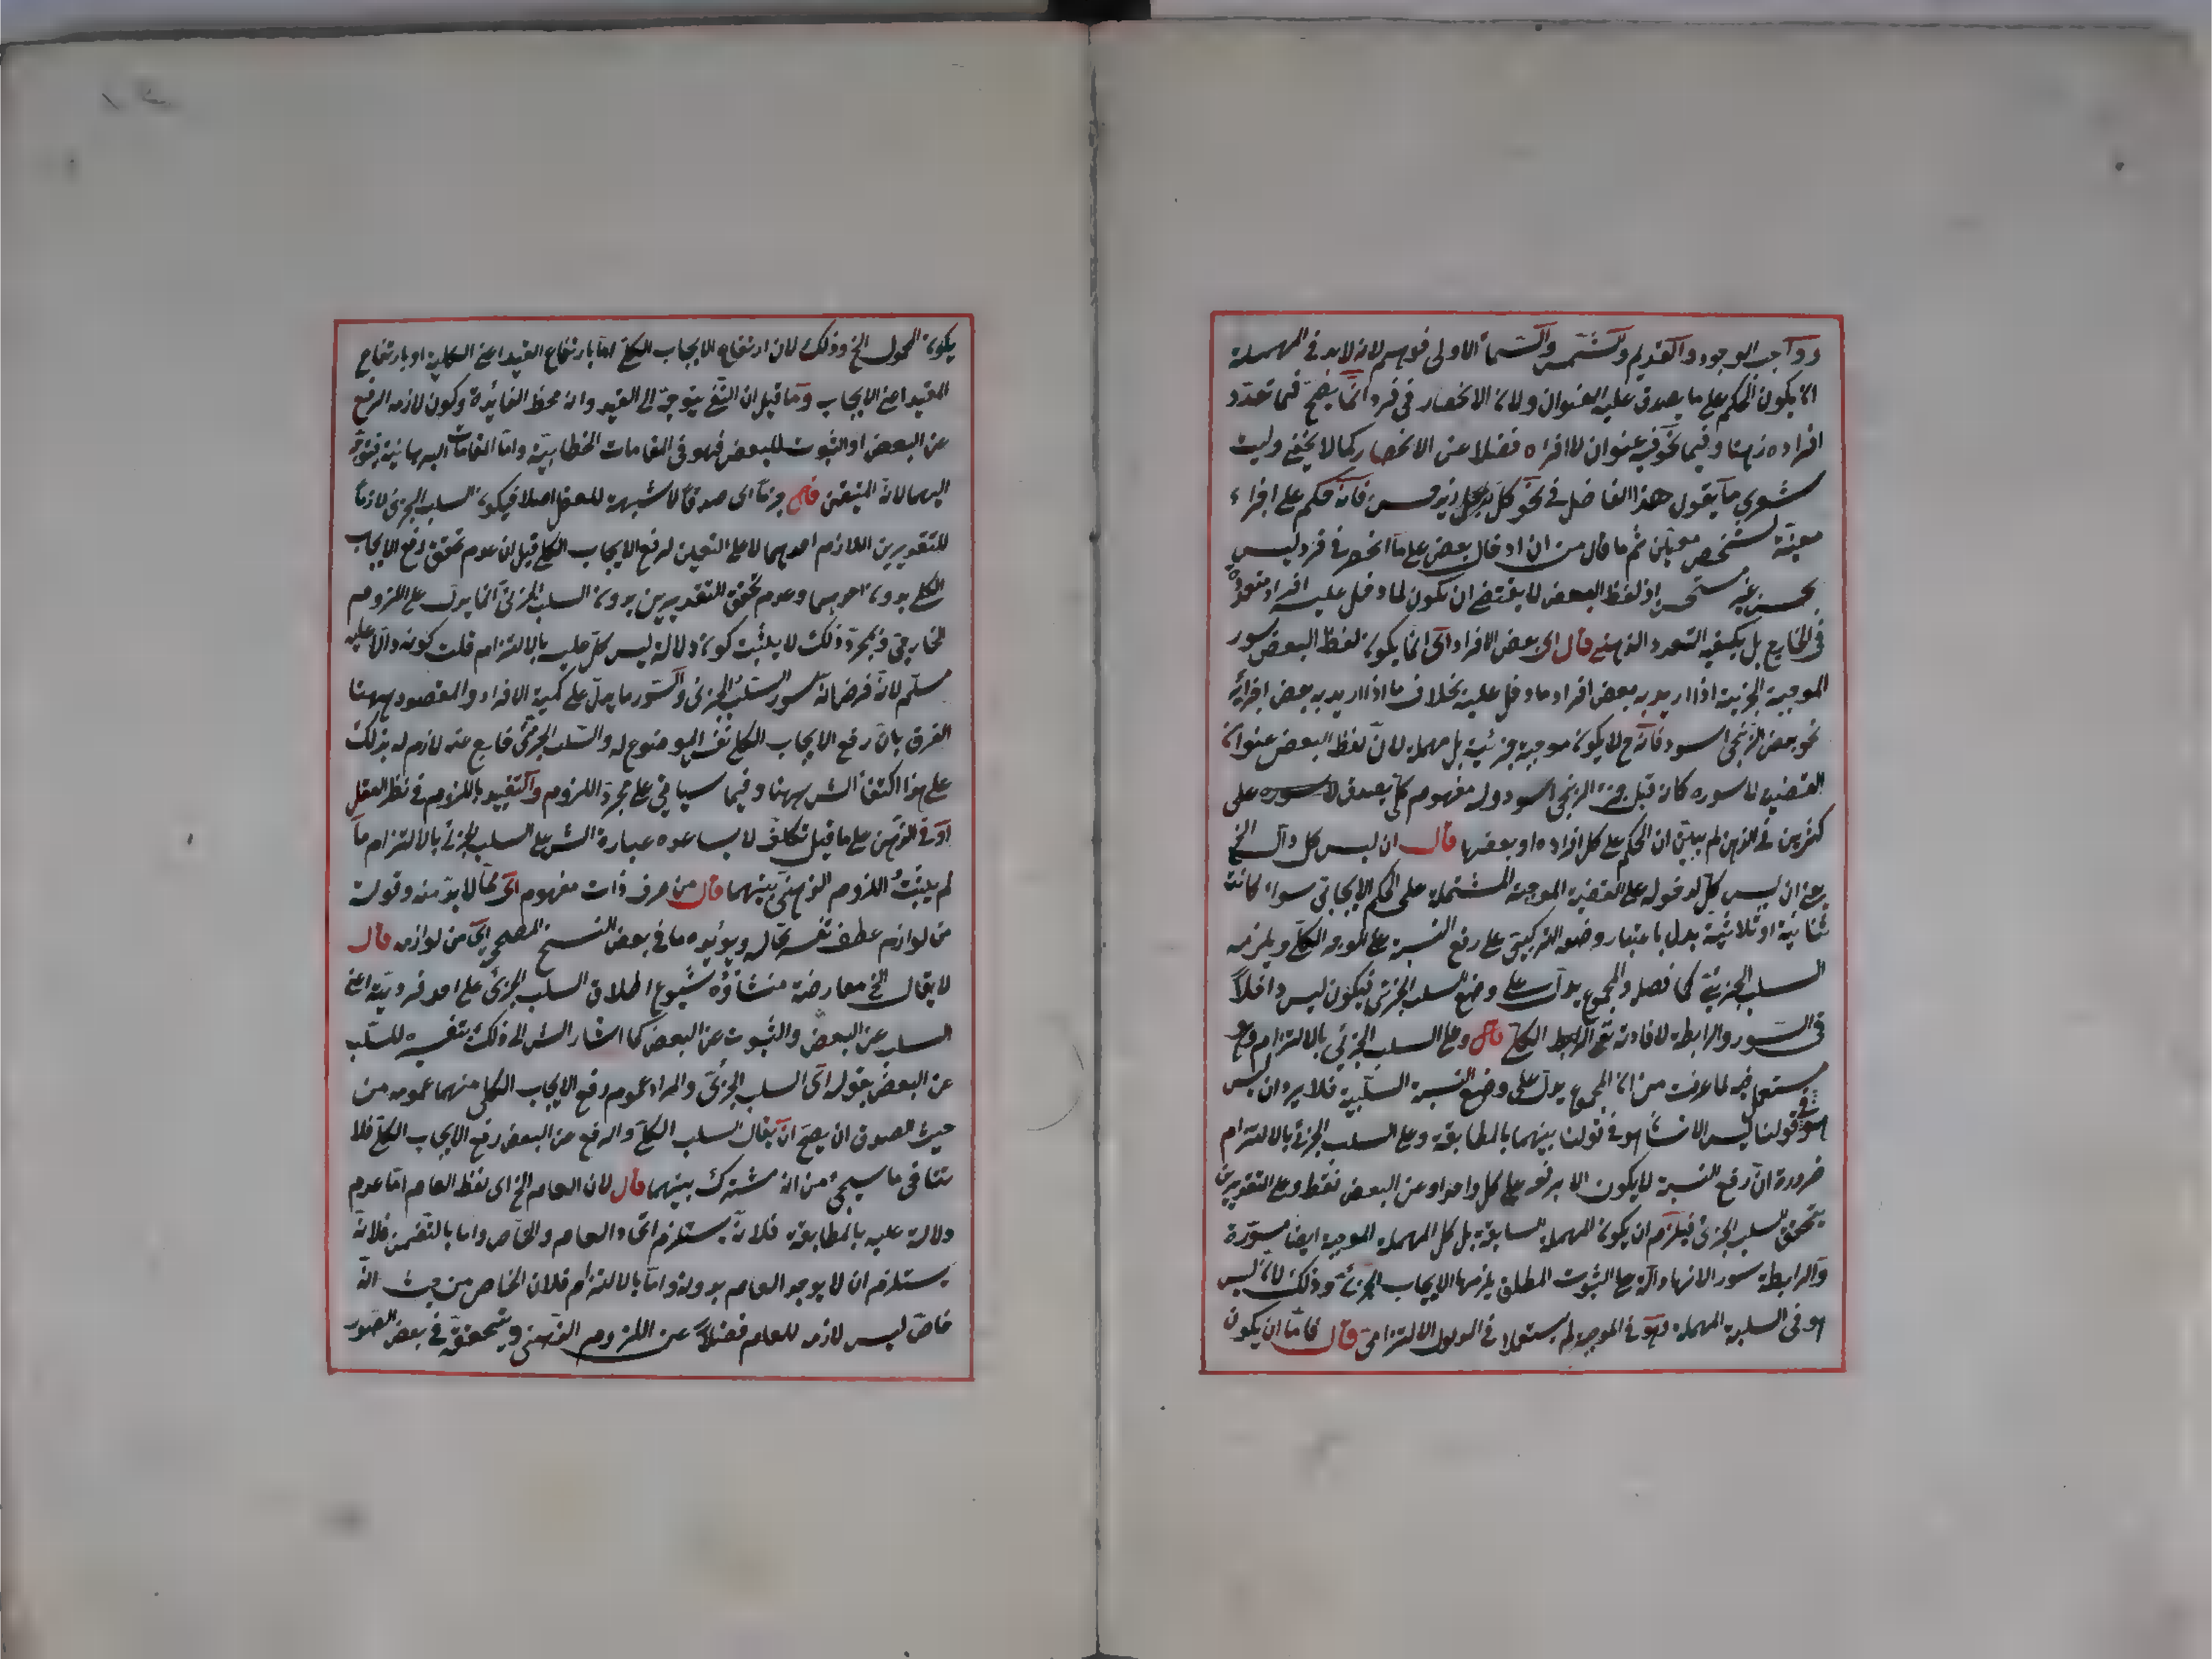 وواجب الوجود والقديم والشمس والسماء الاولى فوهم لانه لابد فى المهملة
ان يكون الحكم على ما يصدق عليه العنوان ولان الانحصار فى فرد انما يصح فيما تعدد
افراده ذهنا وفيما نحو فيه عنوان لا افراد فضلا عن الانحصار كما لا يخفى وليت
شعرى ما يقول هذا الفاضل فى نحو كل رجل زيد فانه حكم على اجزاء
معينة لشخص معين ثم ما قال من ان ادخال بعض على ما انحصر فى فرد ليس
بحسن غير مستحسن اذ لفظ البعض لا يقتضى ان يكون لما دخل عليه افراد متعددة
فى الخارج بل يكفيه التعدد الذهنى قال اى بعض الافراد اى انما يكون لفظ البعض سور
الموجبة الجزئية اذا اريد به بعض افراد ما دخل عليه بخلاف ما اذا اريد به بعض اجزائه
نحو بعض الزنجى اسود فانه ح لا يكون موجبة جزئية بل مهملة لان لفظ البعض عنوان
القضية لا سوره كانه قيل جزء الزنجى اسود وله مفهوم كلى يصدق على
كثيرين فى الذهن لم يبين ان الحكم على كل افراده او بعضها قال ان ليس كل دال الخ
يعنى ان ليس كل لدخوله على القضية الموجبة المشتملة على الحكم الايجابى سواء كانت
ثنائية او ثلاثية يدل باعتبار وضعه التركيبى على رفع النسبة على الكلى ويلزمه
السلب الجزئى كما فصل والمجموع يدل على وضع السلب الجزئى فيكون ليس داخلا
فى السور والرابطة لافادته رفع الرابط الكلى قال وعلى السلب الجزئى بالالتزام وقع
مستعمل فيه لما عرفت من ان المجموع يدل على وضع النسبة السلبية فلا يرد ان ليس
هو فى قولنا ليس الانسان هو فى قولنا بينهما بالمطابقة وعلى السلب الجزئى بالالتزام
ضرورة ان رفع النسبة لا يكون الا برفعه على كل واحد او عن البعض فقط وعلى التقديرين
يتحقق السلب الجزئى فيلزم ان يكون المهملة السابقة بل كل المهملة الموجبة ايضا مسورة
والرابطة سور لانها دالة على الثبوت المطلق يلزمها الايجاب الجزئى وذلك لان ليس
هو فى السلبية المهملة وهو فى الموجبة لم يستعملا فى المدلول الالتزامى قال فاما ان يكون
يكون المحمول الخ وذلك لان ارتفاع الايجاب الكلى اما بارتفاع القيد اعنى الكلية او بارتفاع
المقيد اعنى الايجاب وما قيل ان النفى يتوجه الى القيد وانه محط الفائدة وكون لازمه الرفع
عن البعض او الثبوت للبعض فهو فى المقامات الخطابية واما المقامات البرهانية فيتوجه
اليهما لانه المتيقن قال جزما اى صدقا لا شبهة للعقل اصلا فيكون السلب الجزئى لازما
للتقديرين اللازم احدهما لا على التعيين لرفع الايجاب الكلى قيل ان عدم تحقق رفع الايجاب
الكلى بدون احدهما وعدم تحقق التقديرين بدون السلب الجزئى انما يدل على اللزوم
الخارجى وبمجرد ذلك لا يثبت كون دلالة ليس كل عليه بالالتزام قلت كونه دالا عليه
مسلم لانه فرض انه سور السلب الجزئى والسور ما يدل على كمية الافراد والمقصود ههنا
الفرق بان رفع الايجاب الكلى نفس الموضوع له والسلب الجزئى خارج عنه لازم له بذلك
على هذا اكتفى الش ههنا وفيما سياتى على مجرد اللزوم والتقييد باللزوم فى نظر العقل
او فى الذهن على ما قيل تكلف لا يساعده عبارة الش على السلب الجزئى بالالتزام ما
لم يثبت اللزوم الذهنى بينهما قال من ضرورات مفهوم اى مما لابد منه وقوله
من لوازم عطف تفسير له ويؤيده ما فى بعض النسخ المصحح اى من لوازمه قال
لا يقال الخ معارضة منشاؤه شيوع اطلاق السلب الجزئى على احد فرديه اعنى
السلب عن البعض والثبوت عن البعض كما اشار الش الى ذلك بتفسيره للسلب
عن البعض بقوله اى السلب الجزئى والمراد عموم رفع الايجاب الكلى منهما عمومه من
حيث الصدق ان يصح ان يقال السلب الكلى والرفع عن البعض رفع الايجاب الكلى فلا
يتنافى ما سيجئ من انه مشترك بينهما قال لان العام الخ اى لفظ العام اما عدم
دلالته عليه بالمطابقة فلانه يستلزم اتحاد العام والخاص واما بالتضمن فلانه
يستلزم ان لا يوجد العام بدونه واما بالالتزام فلان الخاص من حيث انه
خاص ليس لازم للعام فضلا عن اللزوم الذهنى ويتحقق فى بعض الصور